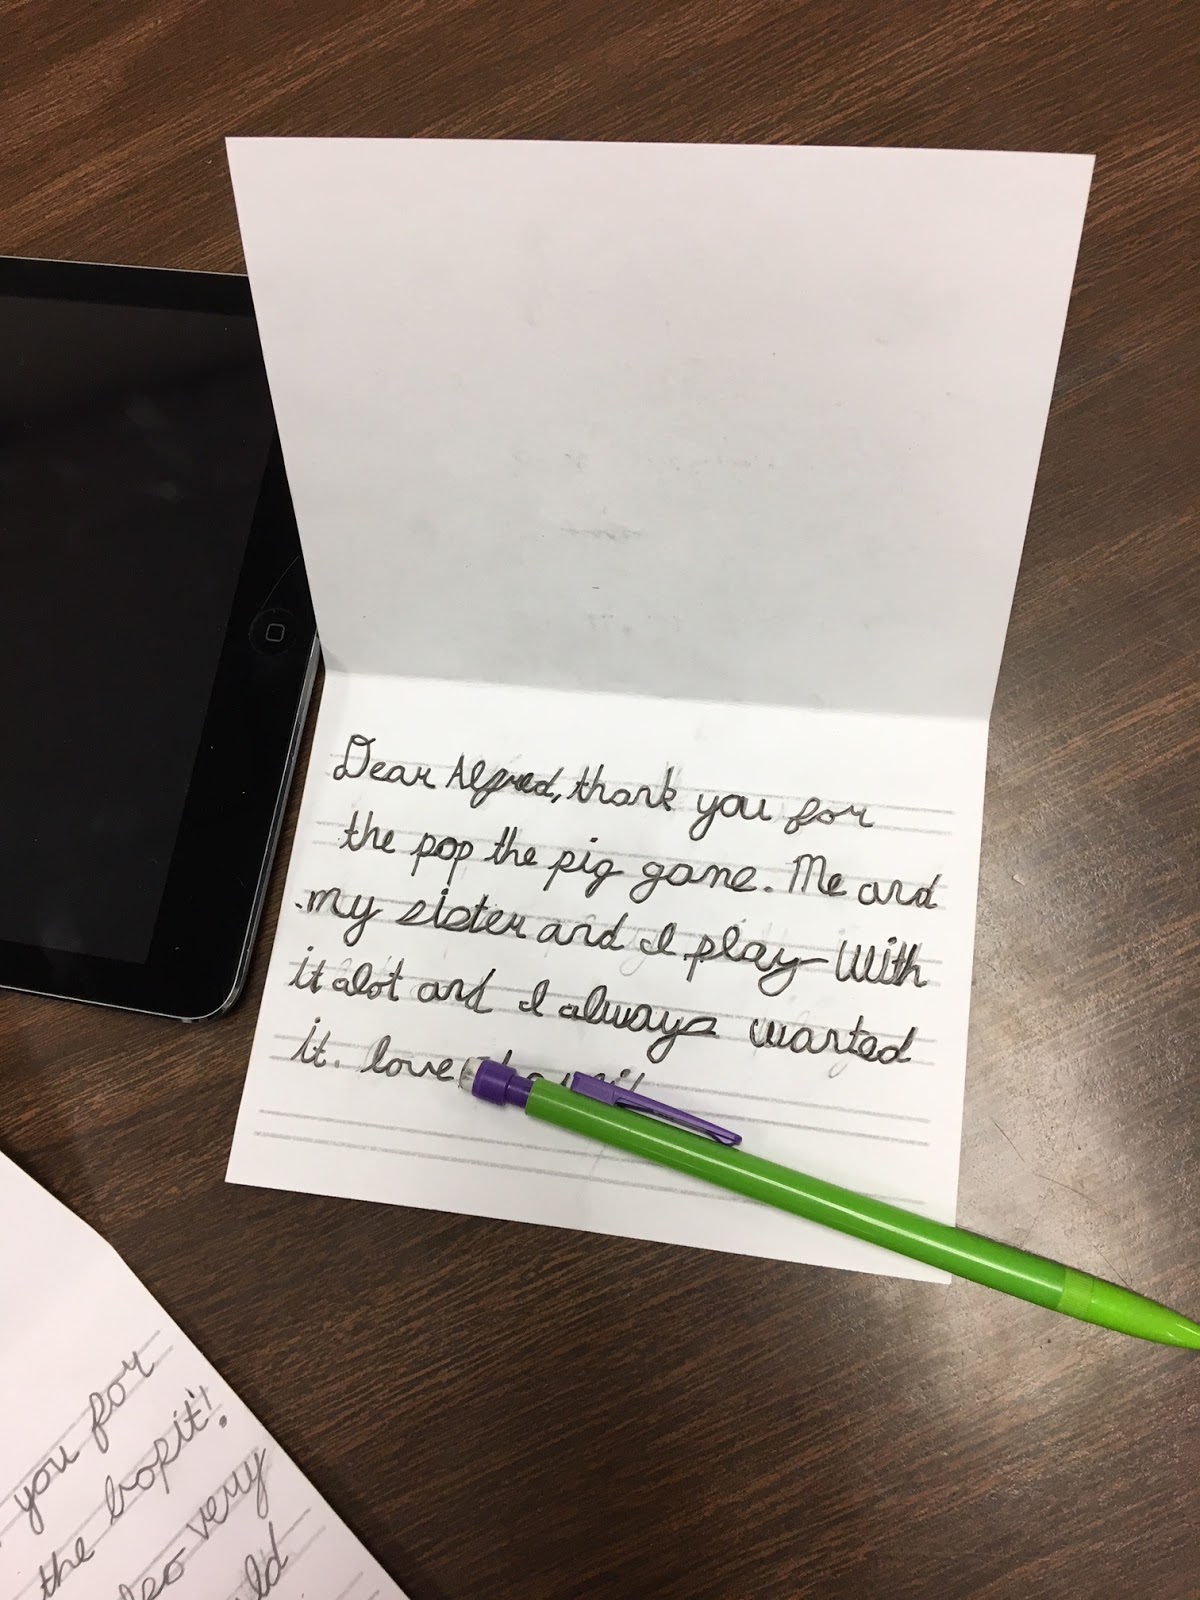 Dear Alfred, thank you for
the pop the pig game. Me and
my sister and I play With
it alot and I always wanted
it. love
you for
the bopit!
also very